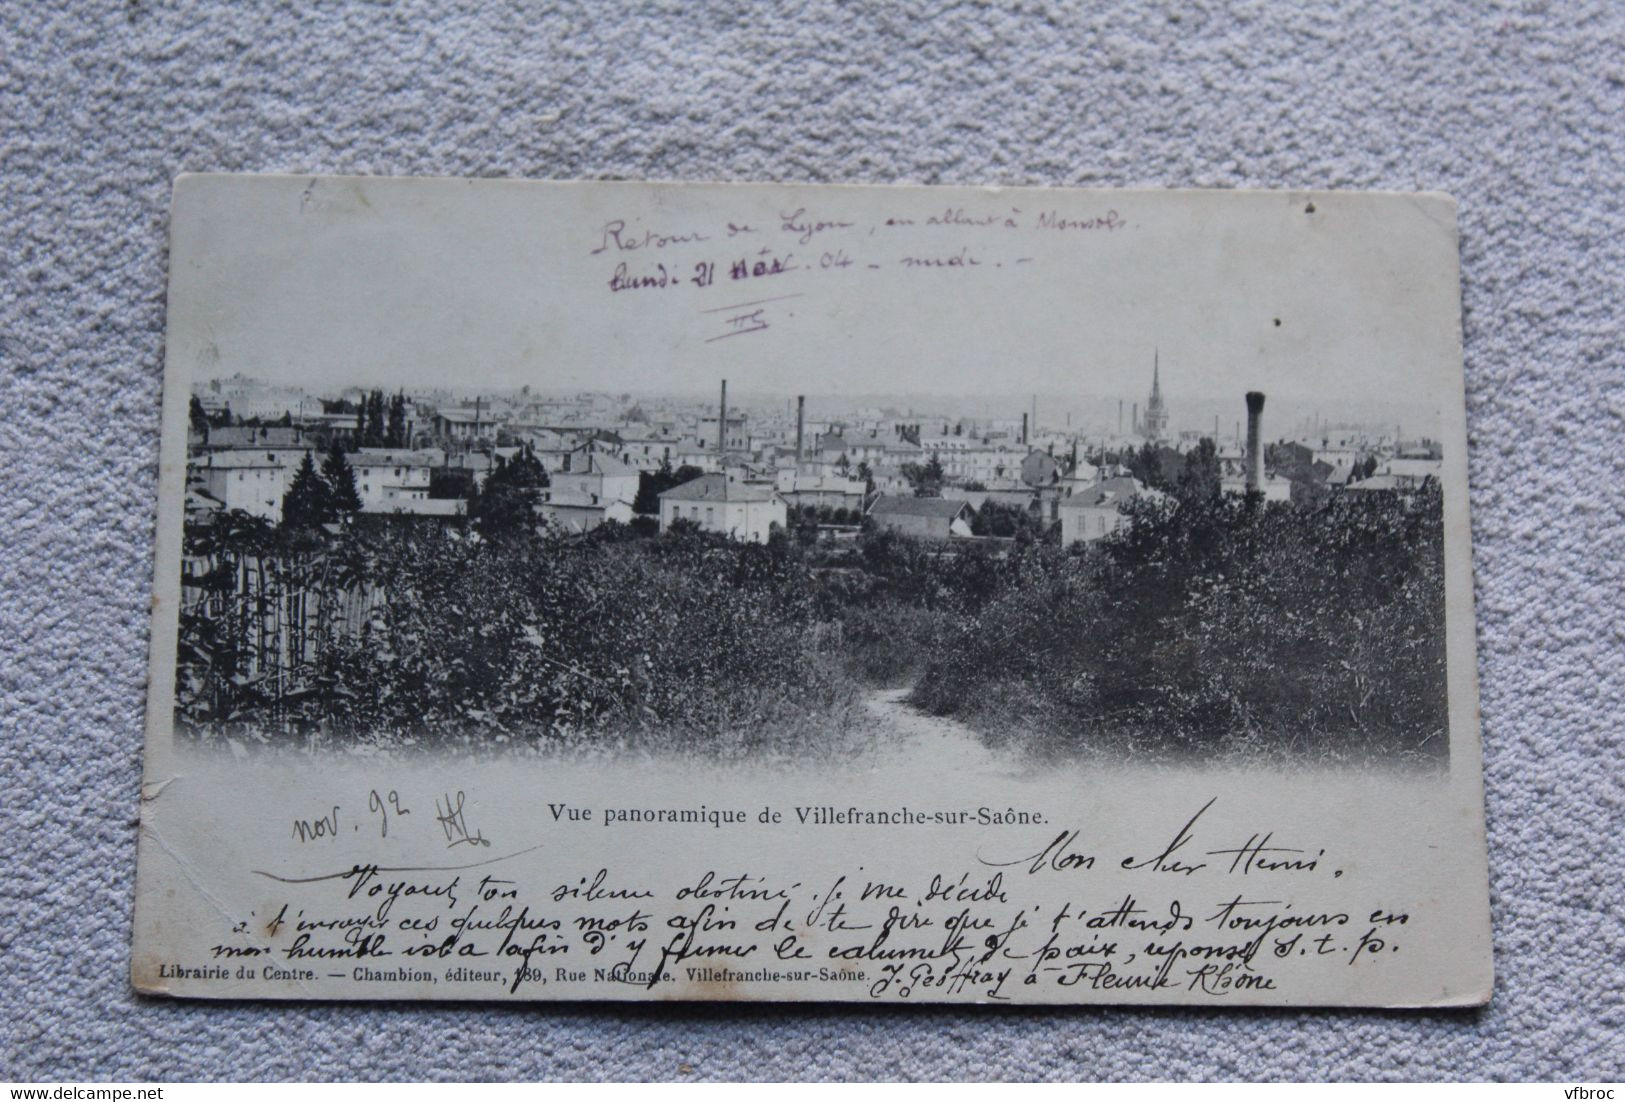 Retour de Lyon, en allant à Monsols.
lundi 21 nov. 04 - midi. -
HG.
Vue panoramique de Villefranche-sur-Saône.
nov. 92
Mon cher Henri,
Voyant ton silence obstiné, je me décide
à t'envoyer ces quelques mots afin de te dire que je t'attends toujours en
mon humble isba afin d'y fumer le calumet de paix, reponse s. t. p.
Librairie du Centre. — Chambion, éditeur, 189, Rue Nationale, Villefranche-sur-Saône.
J. Geoffray à Fleurie Rhône
Delcampe.net
vfbroc